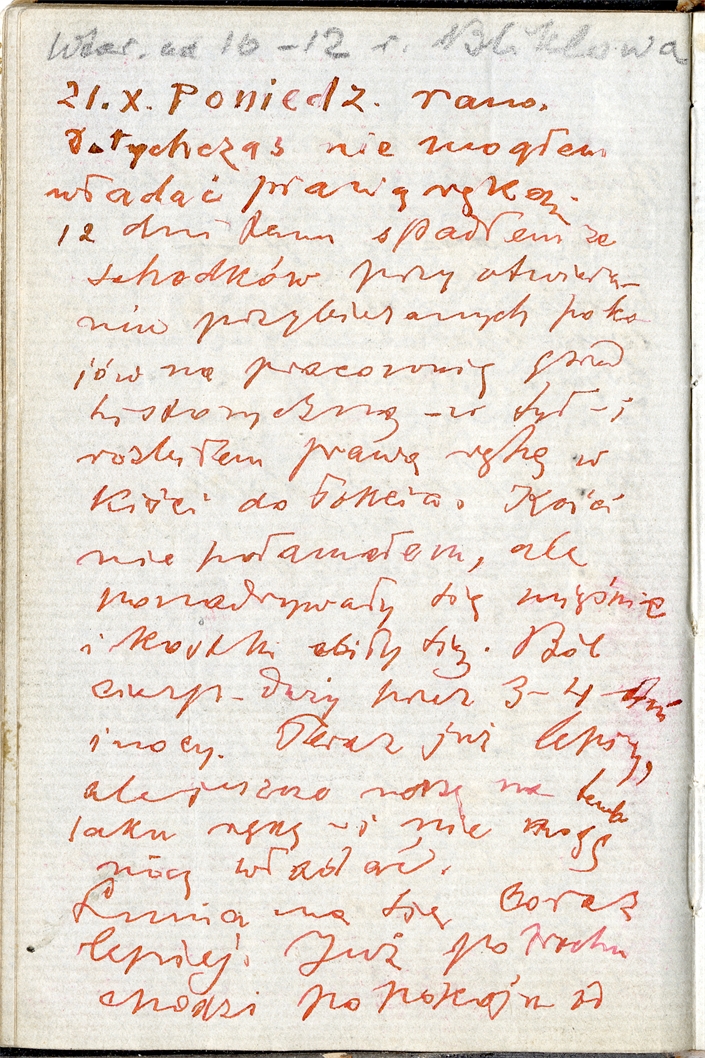 Wtor. od 10-12 r.
21.X. Poniedz. rano.
Dotychczas nie mogłem
władać prawą ręką.
12 dni temu spadłem ze
schodków przy otwiera-
niu przybieranych poko
jów na pracownię
historyczną - w tył - i
prawą rękę w
kiści do łokcia. Kości
nie połamałem, ale
ponadrywały się mięśnie
i kostki zbiły się. Ból
cierp. duży przez 3-4 dni
i nocy. Teraz już lepiej,
ale jeszcze noszę na temb
laku rękę - i nie mogę
nią władać.
ma się coraz
lepiej. Już po trochu
chodzi po pokoju od